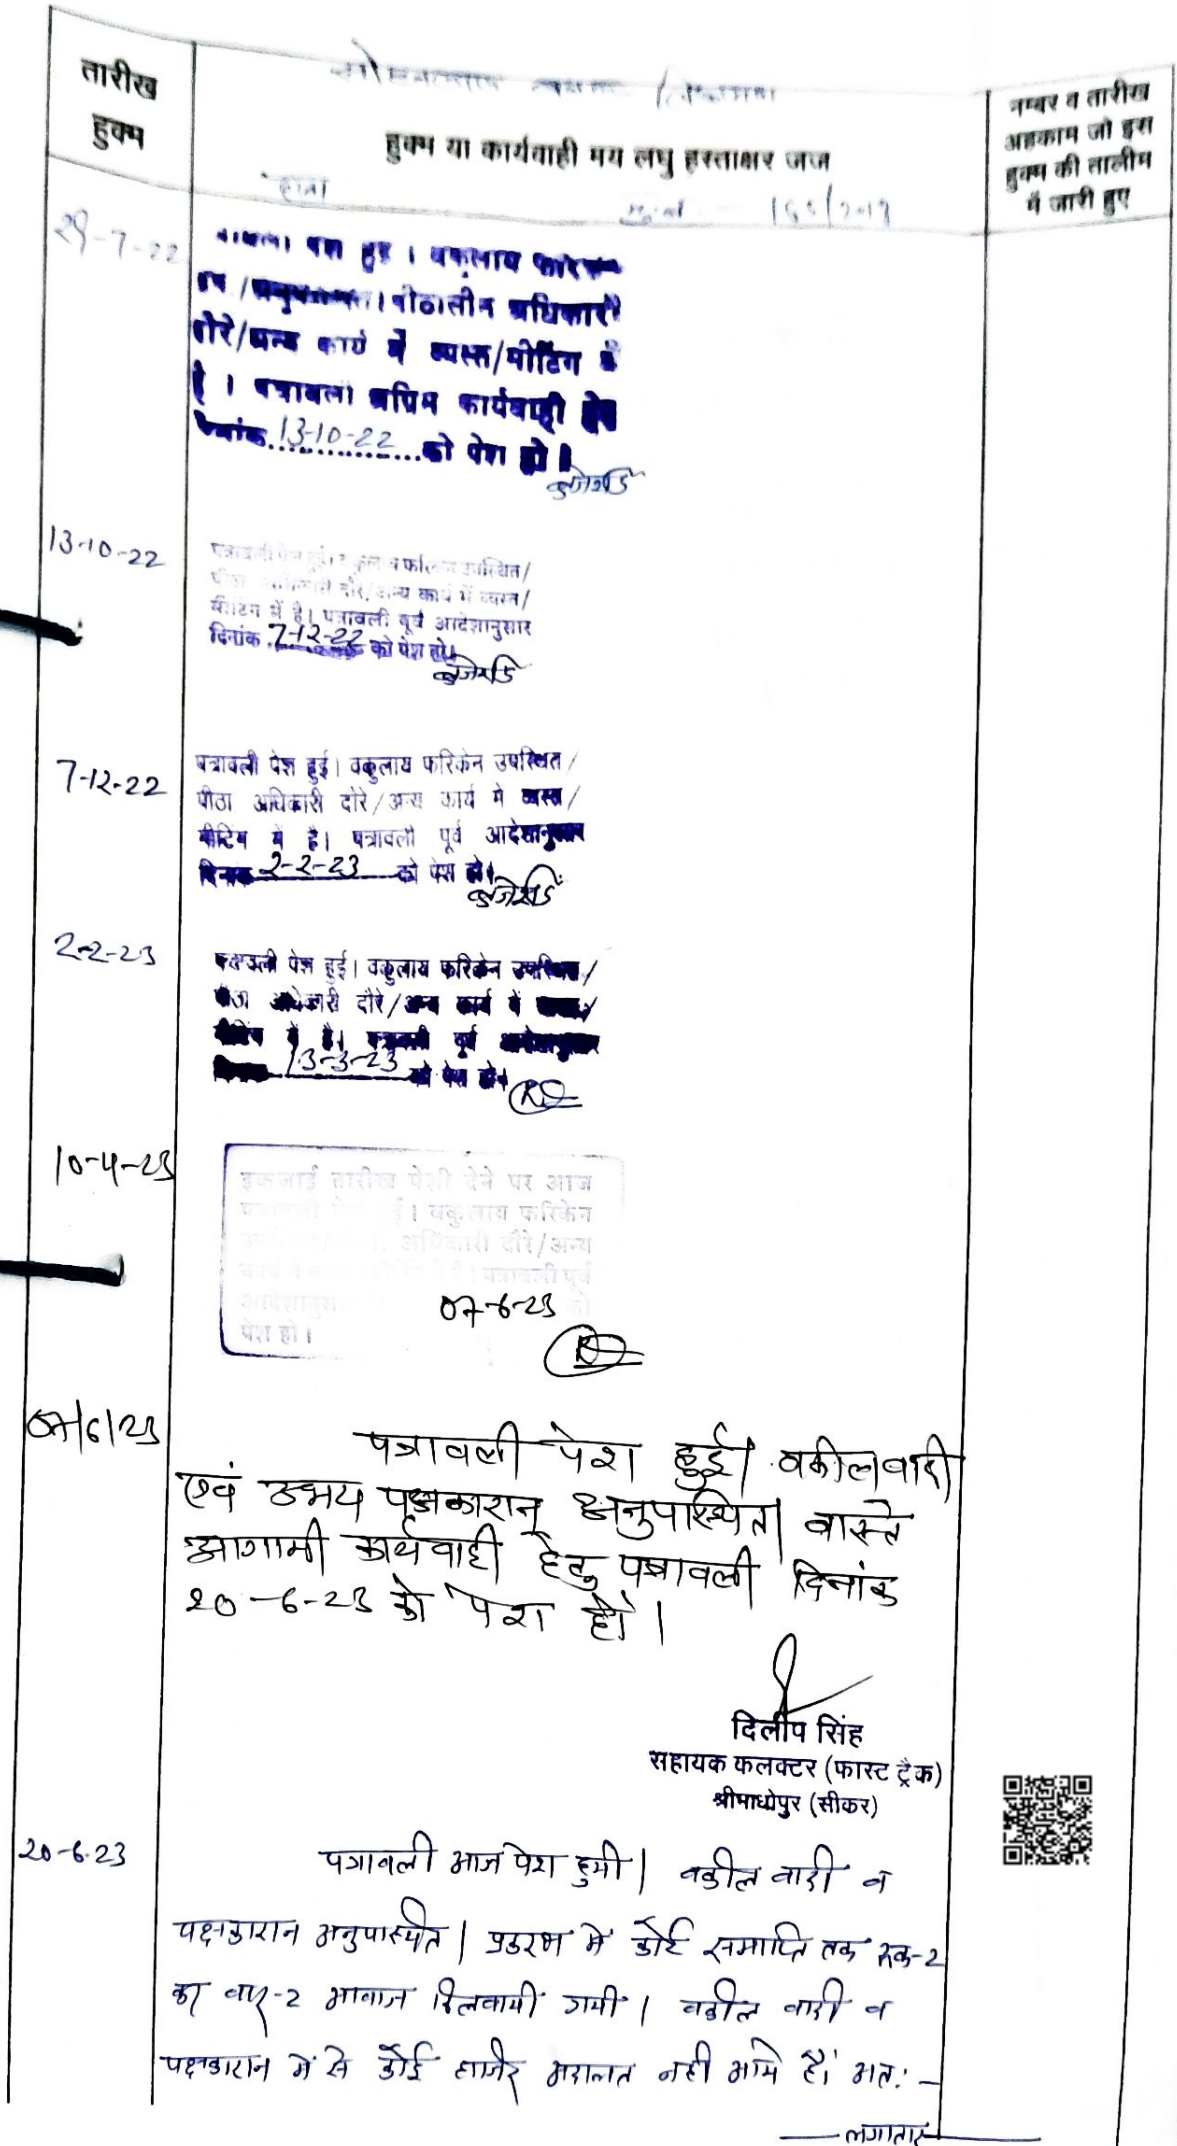 तारीख
हुक्म
हुक्म या कार्यवाही मय लघु हस्ताक्षर जज
नम्बर व तारीख
अहकाम जो इस
हुक्म की तालीम
में जारी हुए
29-7-22
पेश हुई । वकुलाय
पीठासीन अधिकारी
दौरे/अन्य कार्य में व्यस्त/मीटिंग में
है । पत्रावली अग्रिम कार्यवाही हेतु
दिनांक 13-10-22 को पेश हो ।
13-10-22
पत्रावली पेश हुई। वकुलाय फरिकेन उपस्थित/
पीठा अधिकारी दौरे/अन्य कार्य में व्यस्त/
मीटिंग में है। पत्रावली पूर्व आदेशानुसार
दिनांक 7-12-22 को पेश हो।
7-12-22
पत्रावली पेश हुई। वकुलाय फरिकेन उपस्थित/
पीठा अधिकारी दौरे/अन्य कार्य मे व्यस्त/
मीटिंग मे है। पत्रावली पूर्व आदेशानुसार
दिनांक 2-2-23 को पेश हो।
2-2-23
पत्रावली पेश हुई। वकुलाय फरिकेन उपस्थित/
पीठा अधिकारी दौरे/अन्य कार्य में व्यस्त/
मीटिंग में है। पत्रावली पूर्व आदेशानुसार
दिनांक 13-3-23 को पेश हो।
10-4-23
इकजाई तारीख पेशी देने पर आज
पत्रावली पेश हुई। वकुलाय फरिकेन
अधिकारी दौरे/अन्य
पत्रावली पूर्व
आदेशानुसार 07-6-23 को
पेश हो।
07/6/23
पत्रावली पेश हुई। वकील वादी
एवं उभय पक्षकारान् अनुपस्थित। वास्ते
आगामी कार्यवाही हेतु पत्रावली दिनांक
20-6-23 को पेश हो।
दिलीप सिंह
सहायक कलक्टर (फास्ट ट्रैक)
श्रीमाधोपुर (सीकर)
20-6-23
पत्रावली आज पेश हुयी। वकील वादी व
पक्षकारान अनुपस्थित। प्रकरण में कोर्ट समाप्ति तक रूक-2
कर बार-2 आवाज दिलवायी गयी। वकील वादी व
पक्षकारान में से कोई हाजिर अदालत नही आये है। अतः-
लगातार